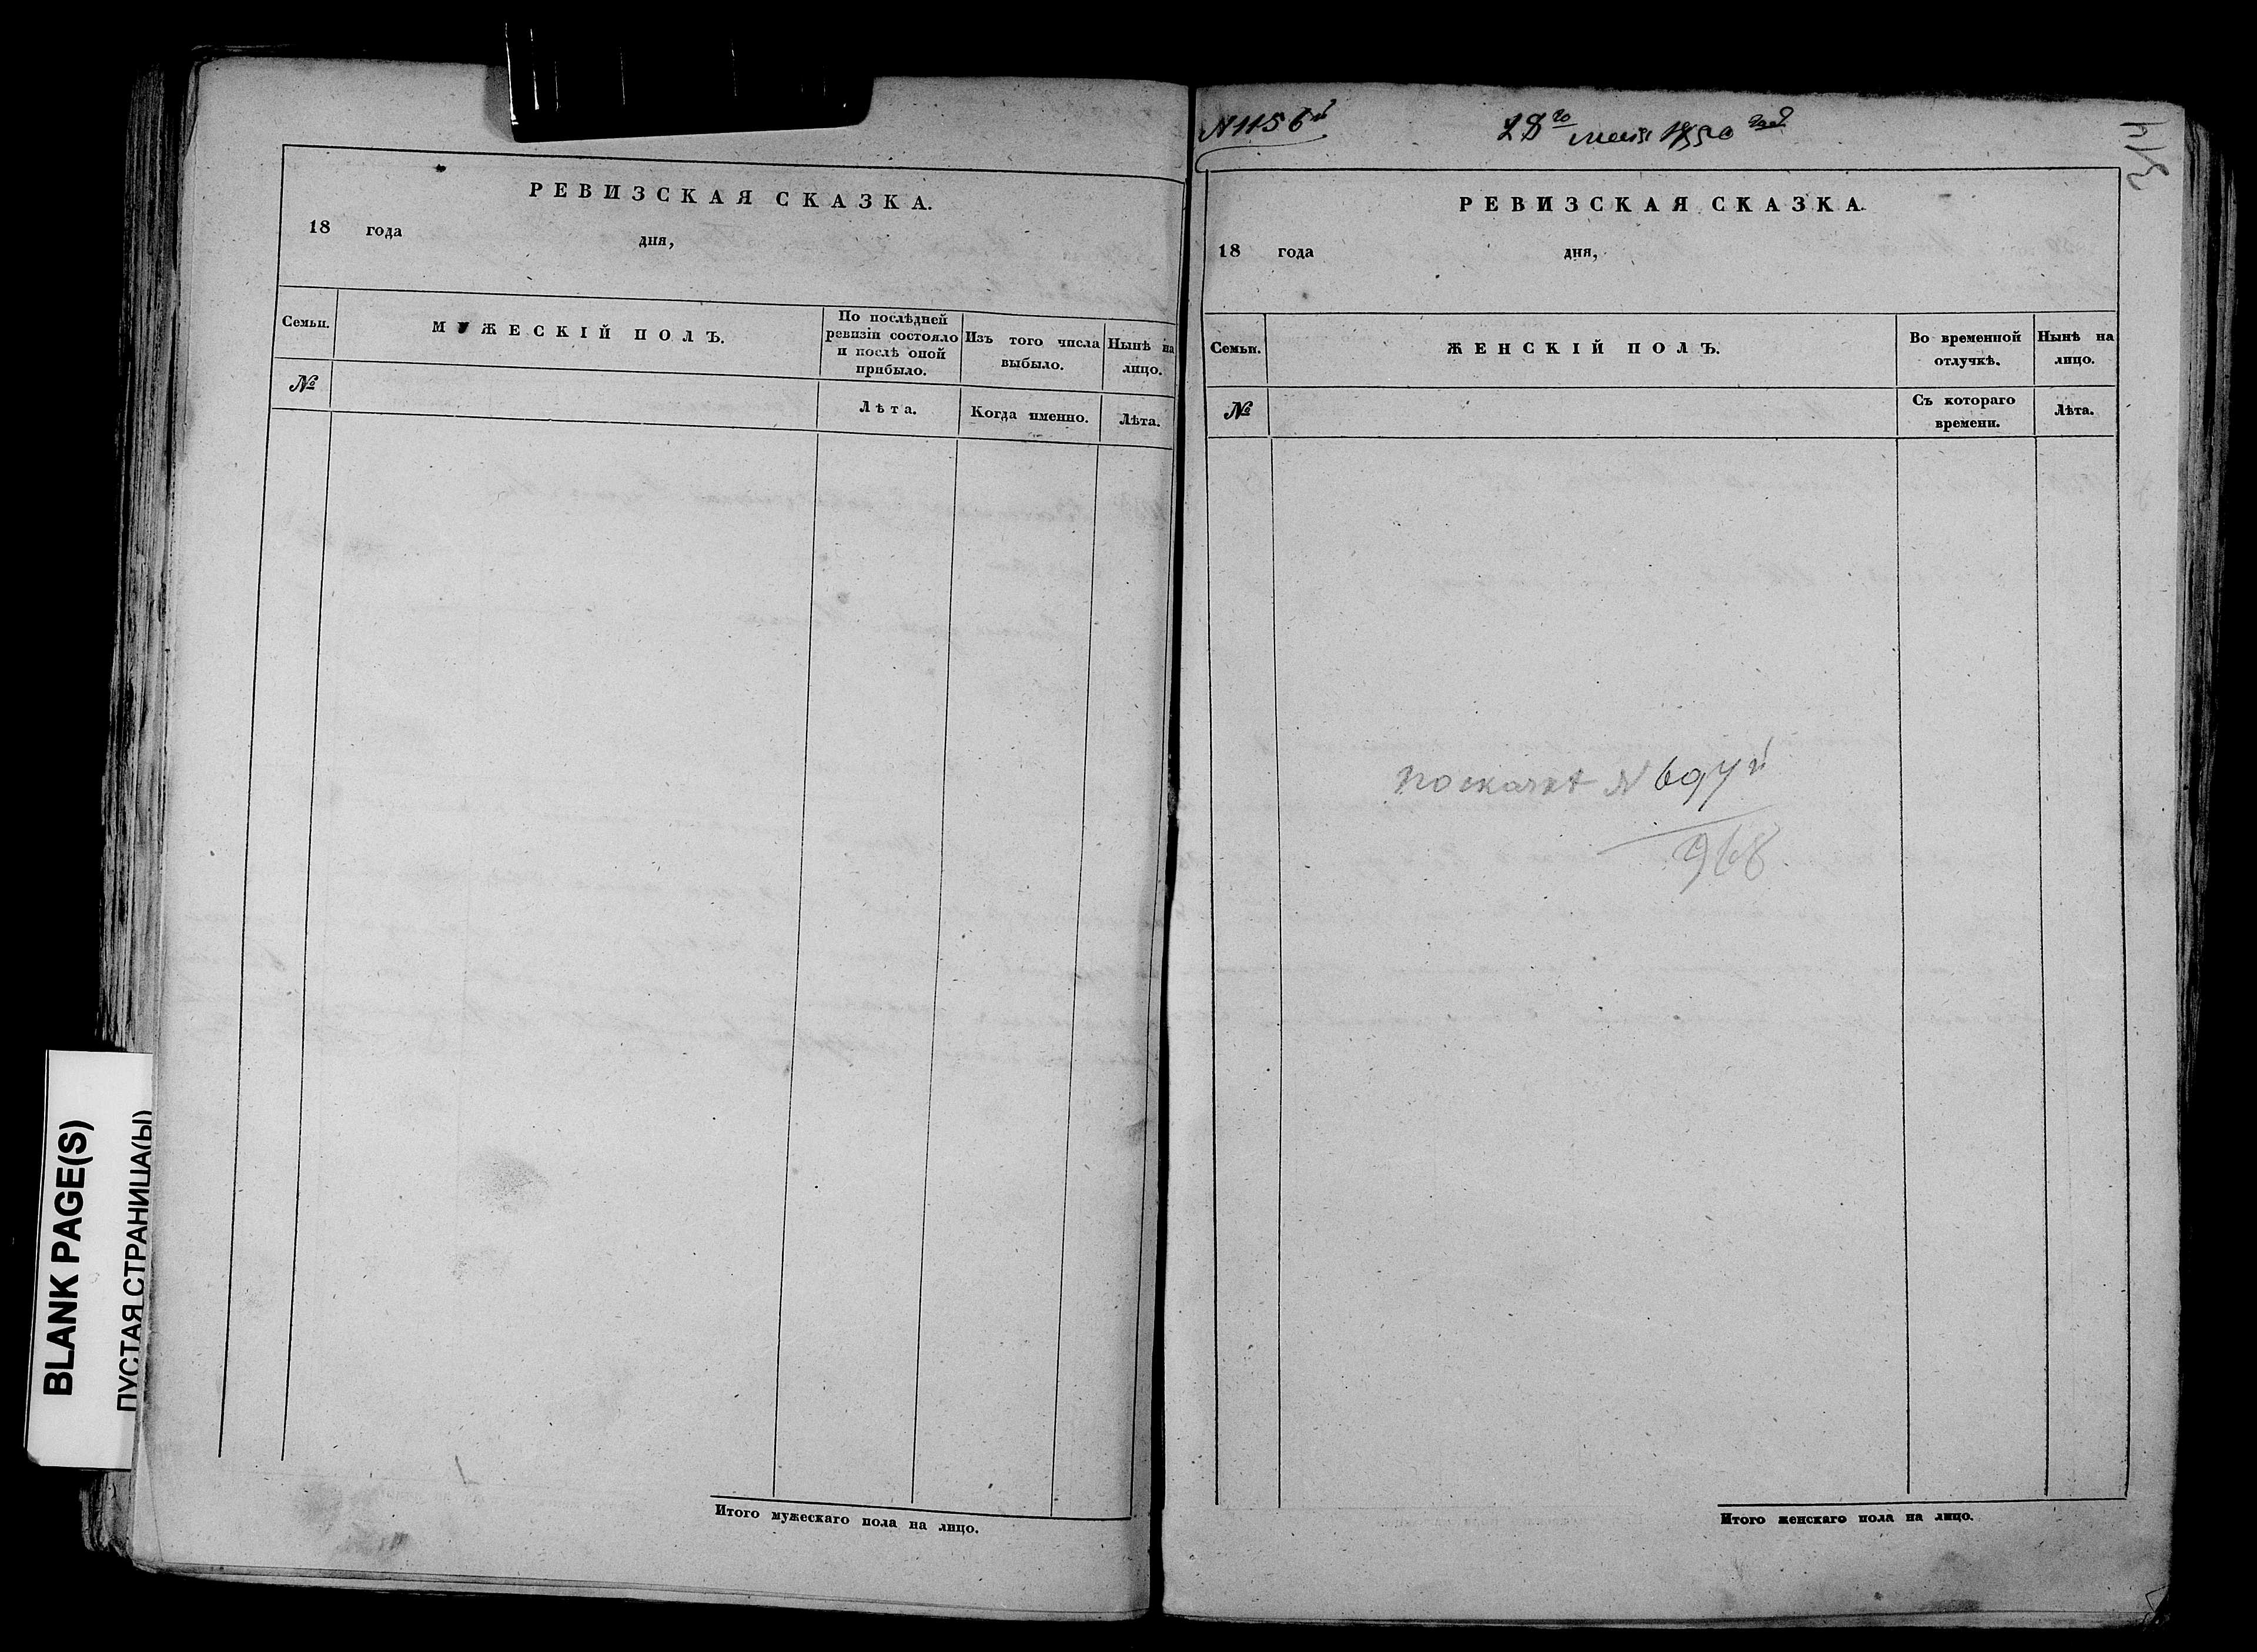 РЕВИЗСКАЯ СКАЗКА.
18 года дня,
Семьи. МУЖЕСКІЙ ПОЛЪ. По послѣдней ревизіи состояло и послѣ оной прибыло. Изъ того числа выбыло. Нынѣ на лицо.
№ Лѣта. Когда именно. Лѣта.
Итого мужескаго пола на лицо.
N 1156й
28го мая 1850 года
314
РЕВИЗСКАЯ СКАЗКА.
18 года дня,
Семьи. ЖЕНСКІЙ ПОЛЪ. Во временной отлучкѣ. Нынѣ на лицо.
№ Съ котораго времени. Лѣта.
по сказкѣ N 697й
968
Итого женскаго пола на лицо.
BLANK PAGE(S)
ПУСТАЯ СТРАНИЦА(Ы)